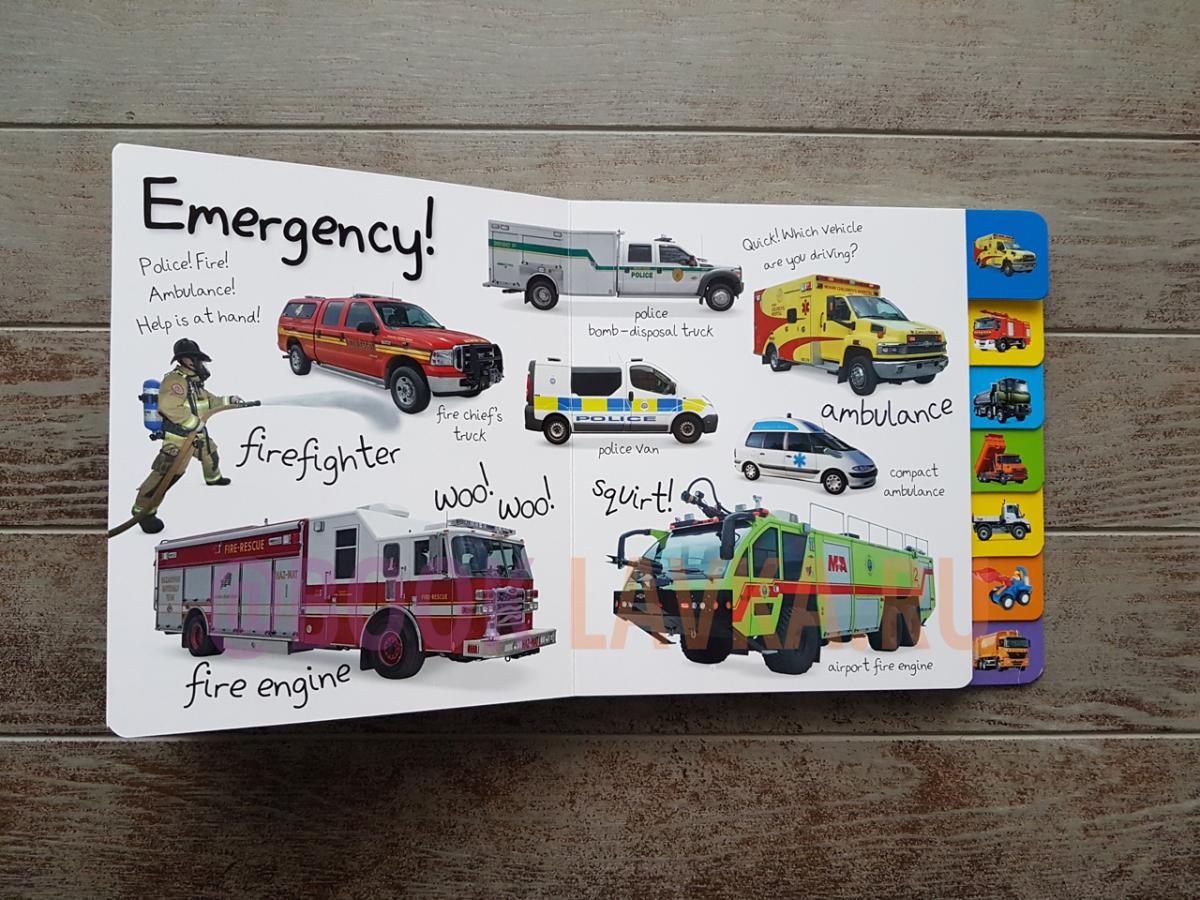 Emergency!
Police! Fire!
Ambulance!
Help is at hand!
firefighter
fire chief's
truck
POLICE
police
bomb-disposal truck
POLICE
police van
Quick! Which vehicle
are you driving?
ambulance
compact
ambulance
woo! woo!
FIRE-RESCUE
HAZ-MAT
FIRE-RESCUE
fire engine
squirt!
MA
2
airport fire engine
@BOOK_LAVKA.RU